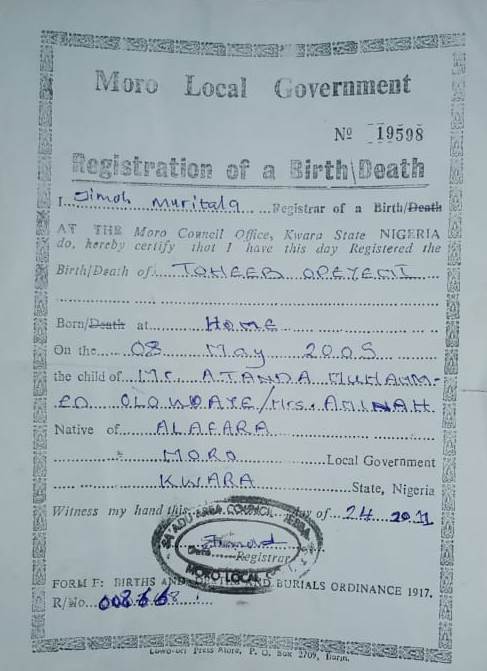 Moro Local Government
No 19598
Registration of a Birth\Death
I Jimoh Muritala Registrar of a Birth/Death
AT THE Moro Council Office, Kwara State NIGERIA
do, hereby certify that I have this day Registered the
Birth/Death of TOHEEB OPEYEMI
Born/Death at HOME
On the 08 May 2005
the child of Mr. ATANDA MUHAMM-
ED OLOWOAYE/Mrs. AMINAH
Native of ALAFARA
MORO Local Government
KWARA State, Nigeria
Witness my hand this day of 24 2011
AREA COUNCIL
Registrar
MORO LOCAL
FORM F: BIRTHS AND AND BURIALS ORDINANCE 1917.
R/No 
Press Store, P. O. Box 2709, Ilorin.